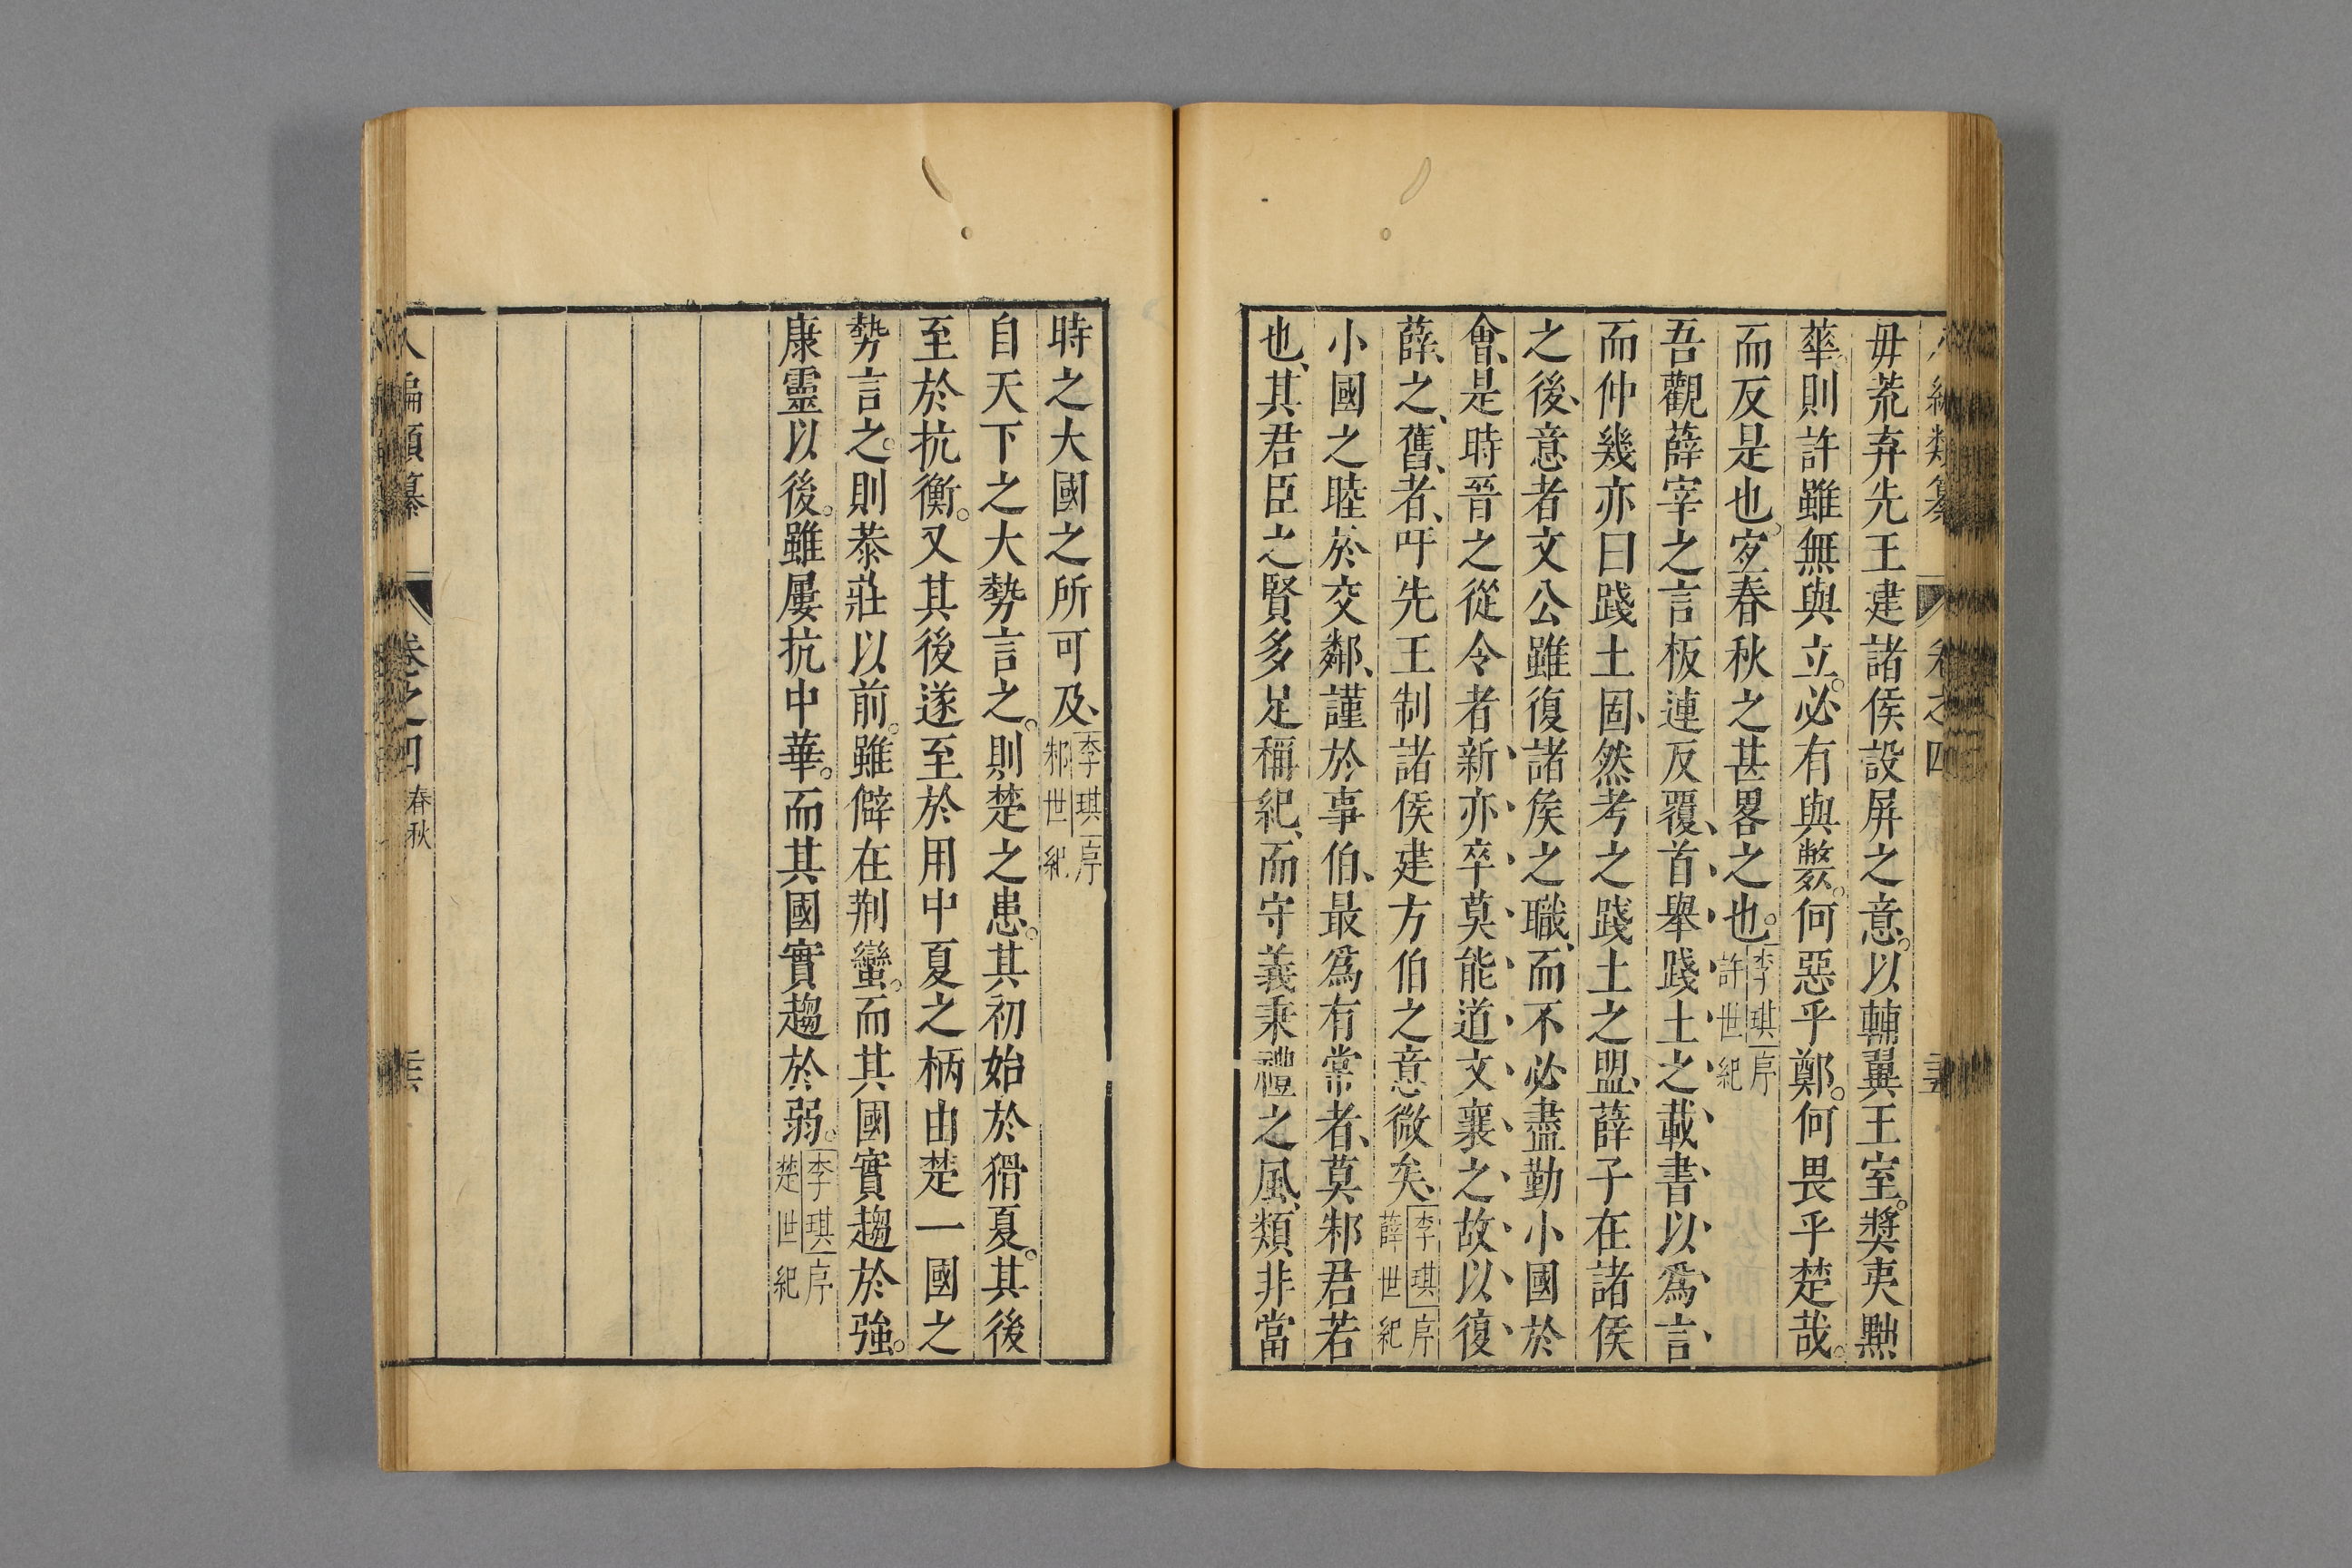 毋荒弃先王建諸侯設屏之意。以輔翼王室。奬夷黜
華。則許雖無與立。必有與斃。何惡乎鄭。何畏乎楚哉。
而反是也。宐春秋之甚畧之也。李琪序許世紀
吾觀薛宰之言板連反覆、首舉踐土之載書以爲言、
而仲幾亦曰踐土固、然考之踐土之盟、薛子在諸侯
之後、意者文公雖復諸矦之職、而不必盡勤小國於
會、是時晉之從令者新、亦卒莫能道文襄之故以復
薛、之、舊、者、吁先王制諸侯建方伯之意微矣、李琪序薛世紀
小國之睦於交鄰、謹於事伯、最爲有常者、莫邾君若
也、其君臣之賢多足稱紀、而守義秉禮之風、類非當
時之大國之所可及、李琪序邾世紀
自天下之大勢言之。則楚之患。其初始於猾夏。其後
至於抗衡。又其後遂至於用中夏之柄由楚一國之
勢言之。則恭莊以前。雖僻在荆蠻。而其國實趨於強。
康靈以後。雖屢抗中華。而其國實趨於弱。李琪序楚世紀
八編類纂 卷之四 春秋